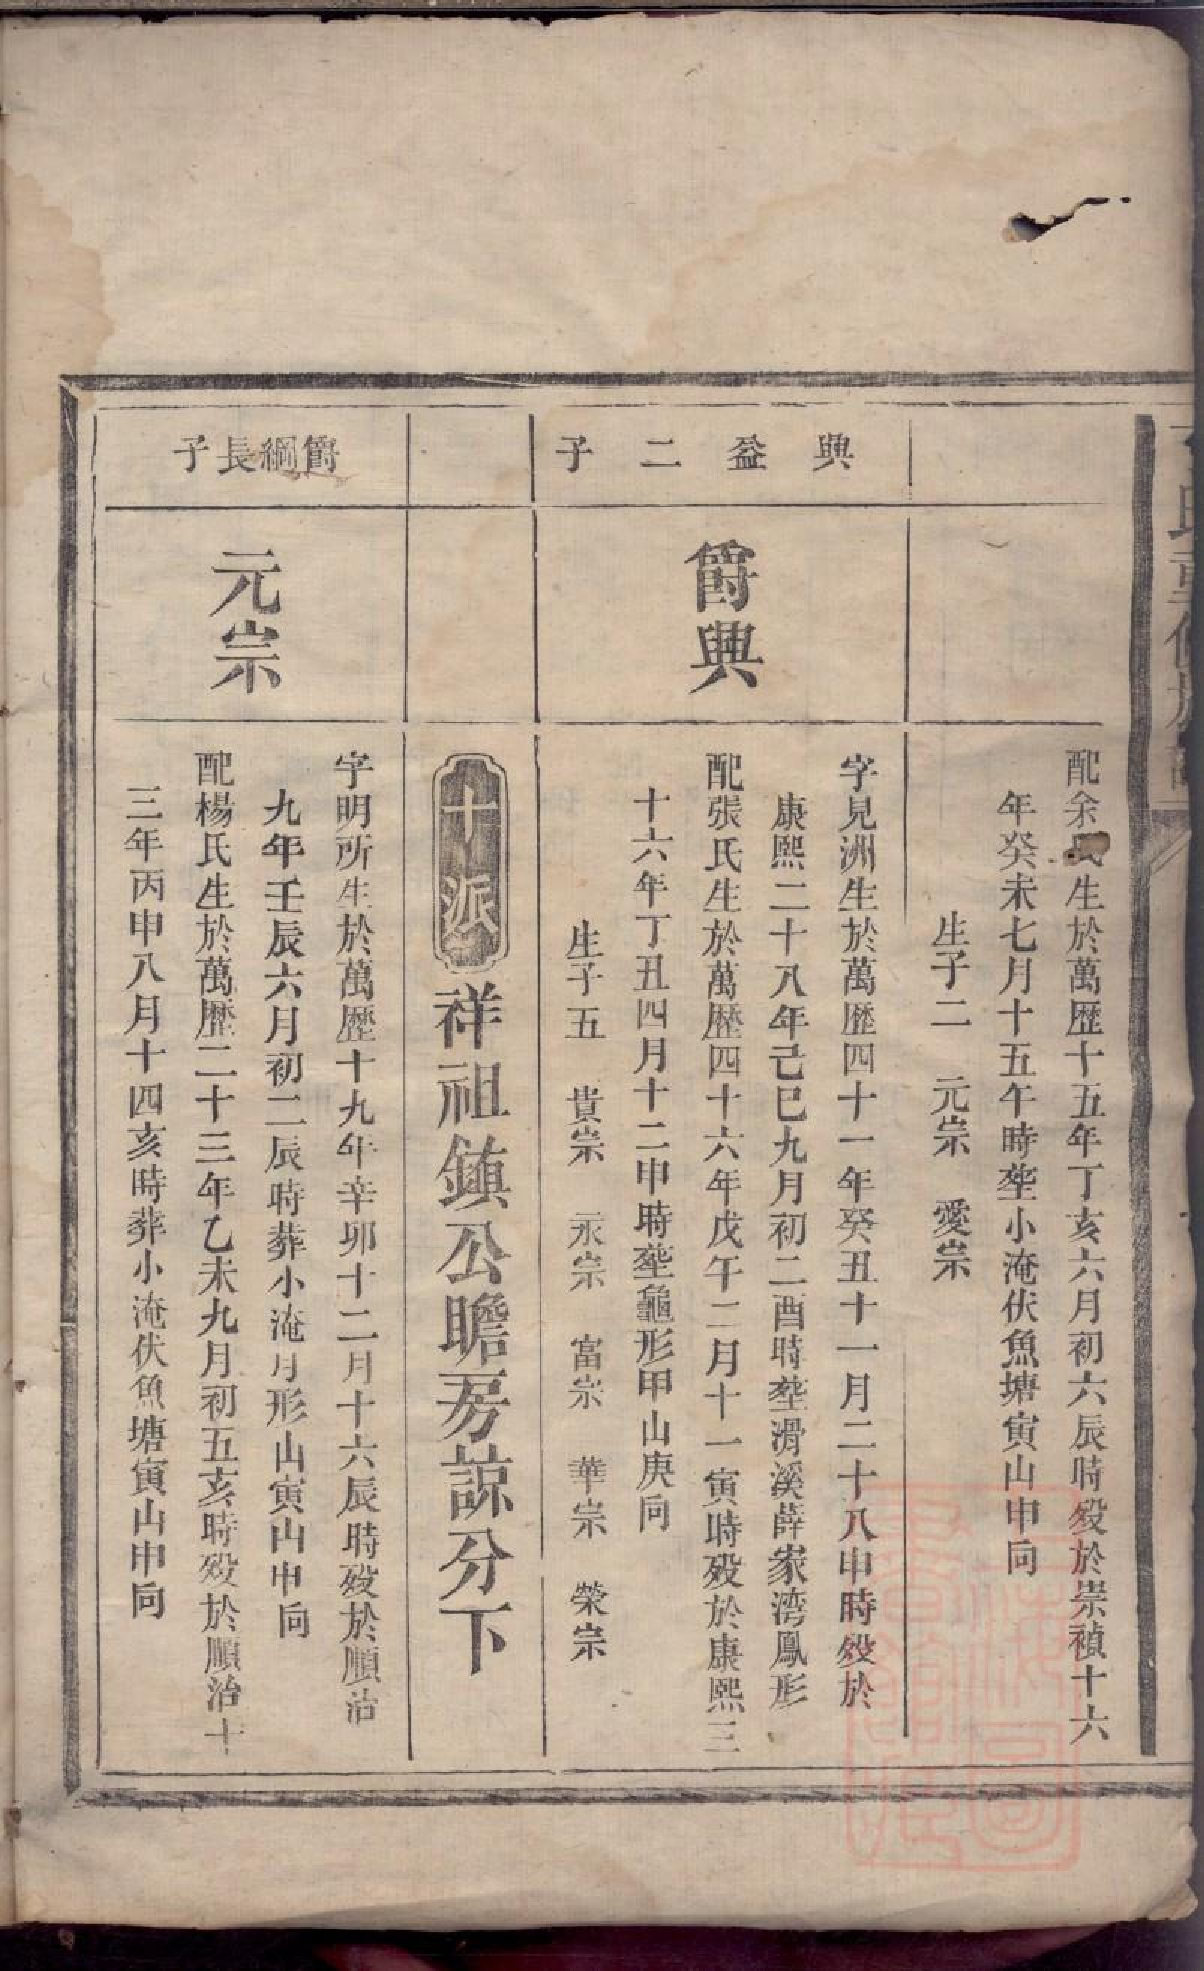 配余氏生於萬歷十五年丁亥六月初六辰時殁於崇禎十六
年癸未七月十五午時塟小淹伏魚塘寅山申向
生子二 元宗 愛宗
興益二子
爵興
字見洲生於萬歷四十一年癸丑十一月二十八申時殁於
康熙二十八年己巳九月初二酉時塟滑溪薛家湾鳳形
配張氏生於萬歷四十六年戊午二月十一寅時殁於康熙三
十六年丁丑四月十二申時塟龜形甲山庚向
生子五 貴宗 永宗 富宗 華宗 榮宗
十派
祥祖鎮公瞻房諒分下
爵綱長子
元宗
字明所生於萬歷十九年辛卯十二月十六辰時殁於順治
九年壬辰六月初二辰時葬小淹月形山寅山申向
配楊氏生於萬歷二十三年乙未九月初五亥時殁於順治十
三年丙申八月十四亥時葬小淹伏魚塘寅山申向